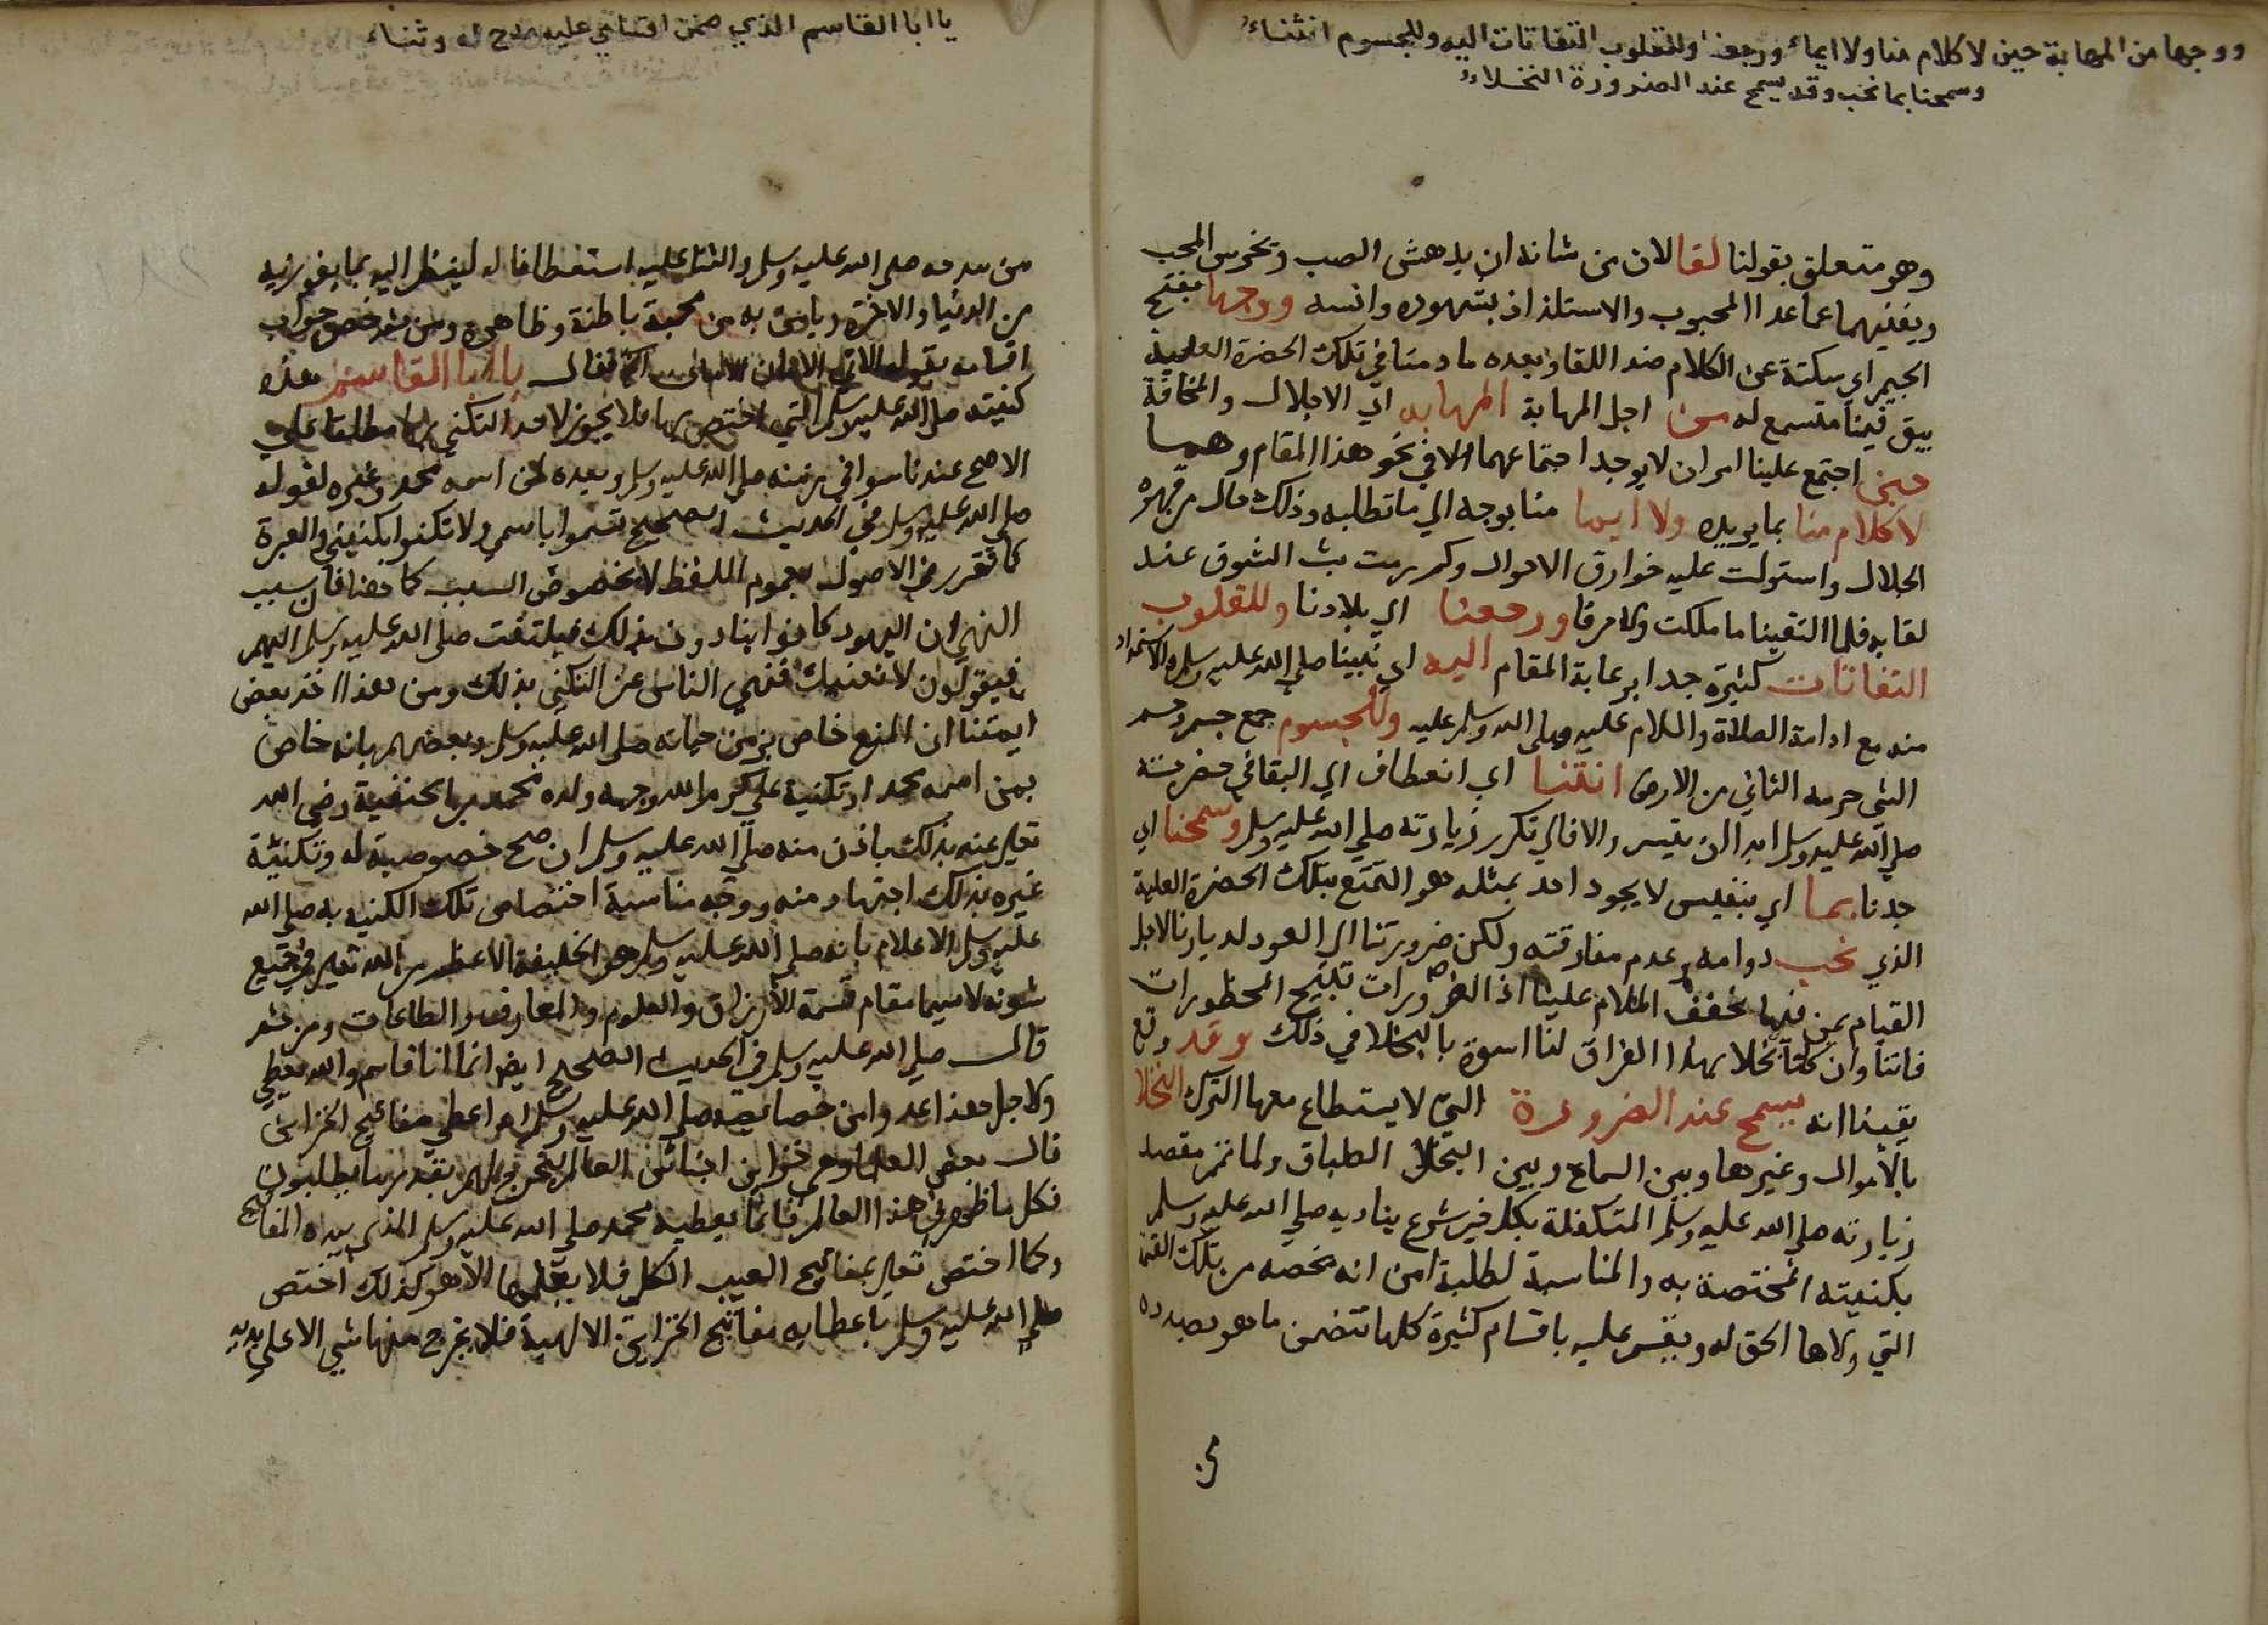 ووجها من المهابة حين لا كلام منا ولا ايماء ورجعنا وللقلوب التفاتات اليه وللجسوم انثناء
وسمحنا بما نحب وقد يسمح عند الضرورة البخلاء
وهو متعلق بقولنا لقا لان من شانه ان يدهش الصب وتخرس المحب
ويغنيهما عما عدا المحبوب والاستلذاذ بشهوده وانسه ووجها بفتح
الجيم اي سكتة عن الكلام ضد اللقا وبعده ما دمنا في تلك الحضرة العلية
يبق فينا متسع له من اجل المهابة المهابه اي الاجلال والمخافة
حين اجتمع علينا امران لا يوجد اجتماعهما الا في نحو هذا المقام وهما
لا كلام منا بما يريده ولا ايما منا بوجه الي ما تطلبه وذلك حال من قهره
الجلال واستولت عليه خوارق الاحوال وكم رمت بث الشوق عند
لقايه فلما التقينا ما ملكت ولا حرفا ورجعنا الي بلادنا وللقلوب
التفاتات كثيرة جدا برعاية المقام اليه اي نبينا صلي الله عليه وسلم والاستمداد
منه مع ادامة الصلاة والسلام عليه صلي الله وسلم عليه وللجسوم جمع جسم وجسم
الشي جرمه الثاني من الارض انثنا اي انعطاف الي البقا في حضرته
صلي الله عليه وسلم ابدا ان تيسر والا فالي تكرر زيارته صلي الله عليه وسلم وسمحنا اي
جدنا بما اي بنفيس لا يجود احد بمثله هو التمتع بتلك الحضرة العلية
الذي نحب دوامه وعدم مفارقته ولكن ضرورتنا الي العود لديارنا لاجل
القيام بمن فيها تخفف الملام علينا اذ الضرورات تبيح المحظورات
فاتنا وان كنا بخلا بهذا الفراق لنا اسوة بالبخلا في ذلك وقد وقع
يقينا انه يسمح عند الضرورة التي لا يستطاع معها الترك البخلا
بالاموال وغيرها وبين السماح وبين البخلا الطباق ولما تمم مقصد
زيارته صلي الله عليه وسلم المتكفلة بكل خير شرع يناديه صلي الله عليه وسلم
بكنيته المختصة به والمناسبة لطلبة امن انه يخصه من تلك القسمة
التي ولاها الحق له ويقسم عليه باقسام كثيرة كلها تتضمن ما هو بصدده
من
يا ابا القاسم الذي ضمن اقسامي عليه مدح له وثناء
من مدحه صلي الله عليه وسلم والثنا عليه استعطافا له لينظر اليه بما يفوز به
من الدنيا والاخرة ويامن به من محبة باطنة وظاهرة ومن ثم خص جواب
اقسامه بقوله الاتي الامان الامان فقال يا ابا القاسم هذه
كنيته صلي الله عليه وسلم التي اختص بها فلا يجوز لاحد التكني بها مطلقا علي
الاصح عندنا سوا في زمنه صلي الله عليه وسلم وبعده لمن اسمه محمد وغيره لقوله
صلي الله عليه وسلم في الحديث الصحيح تسموا باسمي ولا تكنوا بكنيتي والعبرة
كما تقرر في الاصول بعموم اللفظ لا بخصوص السبب كما هنا فان سبب
النهي ان اليهود كانوا ينادون بذلك فيلتفت صلي الله عليه وسلم اليهم
فيقولون لا نعنيك فنهي الناس عن التكني بذلك ومن هذا اخذ بعض
ايمتنا ان المنع خاص بزمن حياته صلي الله عليه وسلم وبعضهم بانه خاص
بمن اسمه محمد او تكنية علي كرم الله وجهه ولده محمد بن الحنفية رضي الله
تعلي عنه بذلك باذن منه صلي الله عليه وسلم ان صح خصوصية له وتكنية
غيره بذلك اجتهاد منه ووجه مناسبة اختصاص تلك الكنيه به صلي الله
عليه وسلم الاعلام بانه صلي الله عليه وسلم هو الخليفة الاعظم من الله تعلي في جميع
شونه لا سيما مقام قسمة الارزاق والعلوم والمعارف والطاعات ومن ثم
قال صلي الله عليه وسلم في الحديث الصحيح ايضا انما انا قاسم والله يعطي
ولاجل هذا عد وامن خصايصه صلي الله عليه وسلم انه اعطي مفاتيح الخزاين
قال بعض العلما وهي خزاين اجناس العالم ليخرج لهم بقدر ما يطلبون
فكل ما ظهر في هذا العالم فانما يعطيه محمد صلي الله عليه وسلم الذي بيده المفاتيح
وكما اختص تعلي بمفاتيح الغيب الكل فلا يعلمها الا هو كذلك اختص
صلي الله عليه وسلم باعطايه مفاتيح الخزاين الالهية فلا يخرج منها شي الا علي يديه